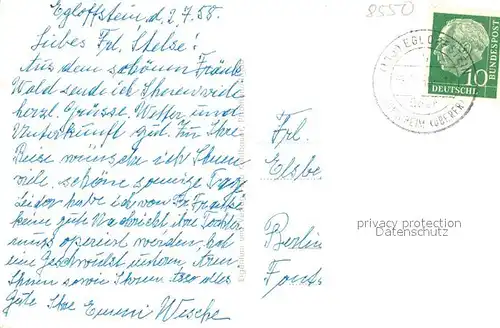 Egloffstein, d. 2.7.58.
Liebes Frl. Stelse!
Aus dem schönen Fränk.
Wald sende ich Ihnen viele
herzl. Grüsse. Wetter und
Unterkunft gut. Für Ihre
Reise wünsche ich Ihnen
viele schöne sonnige Tage.
Leider habe ich von Fr.
keine gute Nachricht, ihre Tochter
operiert werden, hat
ein Geschwulst unterm Arm.
Ihnen Ihnen also alles
Gute Ihre Emmi Wesche
Frl.
Elsbe
Berlin
Font
8550
EGLOFFSTEIN
10
DEUTSCHE
BUNDESPOST
privacy protection
Datenschutz